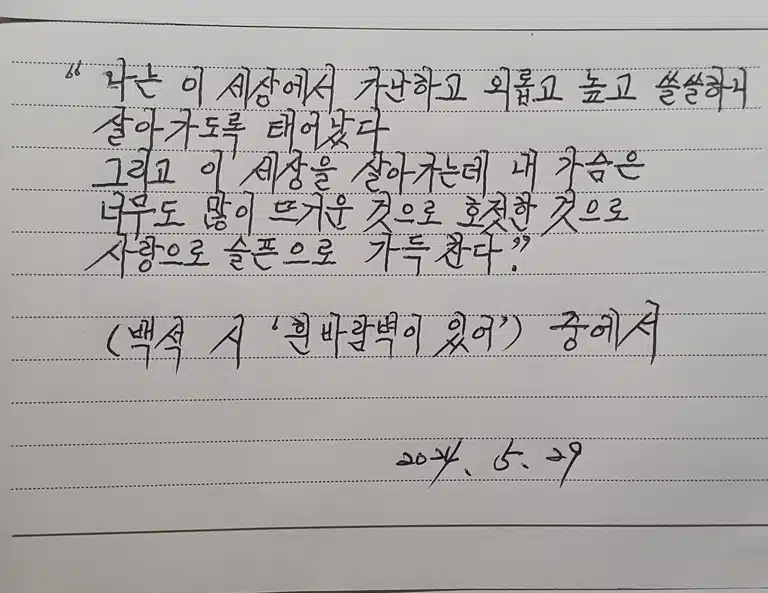 “ 나는 이 세상에서 가난하고 외롭고 높고 쓸쓸하니
살아가도록 태어났다
그리고 이 세상을 살아가는데 내 가슴은
너무도 많이 뜨거운 것으로 호젓한 것으로
사랑으로 슬픈으로 가득 찬다.”
(백석 시 ‘흰 바람벽이 있어’) 중에서
2024. 5. 29